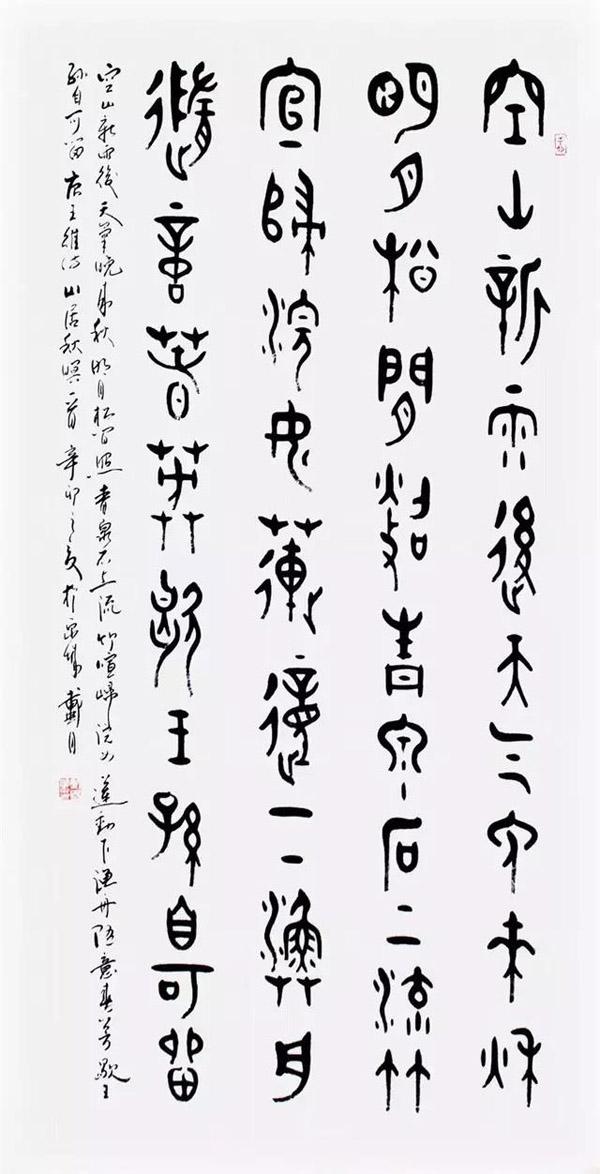 空山新雨後天气晚来秋
明月松間照青泉石上流竹
宣歸浣女蓮動下漁舟
隨意春芳歇王孫自可留
空山新雨後天气晚来秋明月松間照青泉石上流竹喧歸浣女蓮動下漁舟隨意春芳歇王
孫自可留右王維詩山居秋暝一首辛卯之夏於戴月